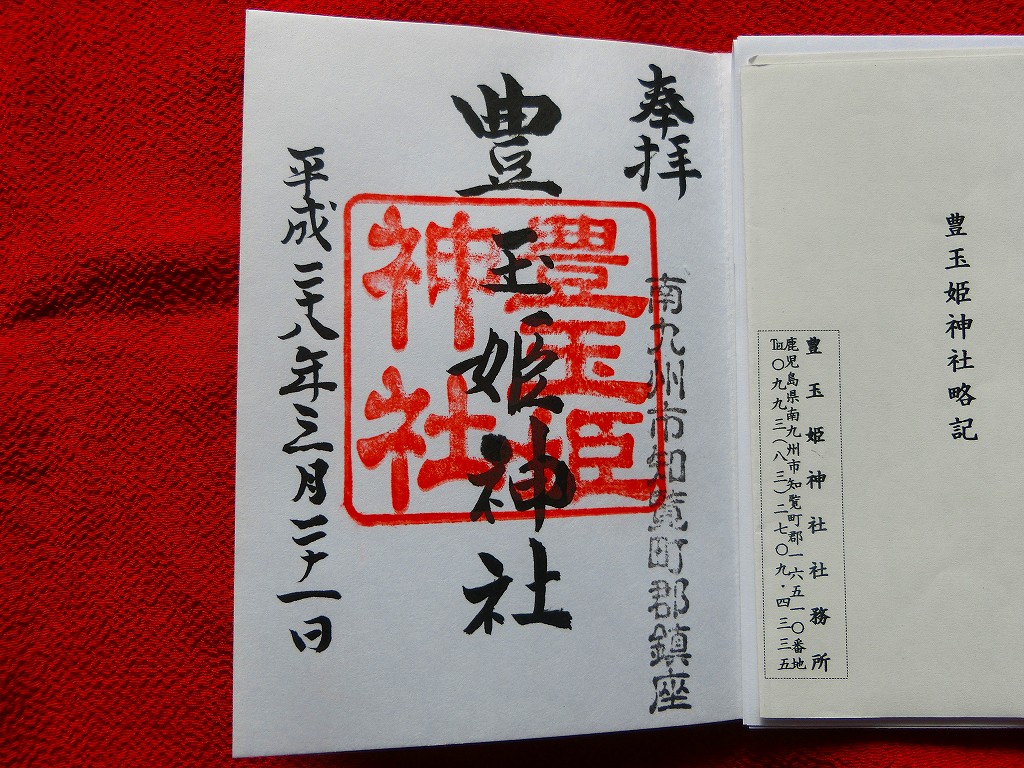 豊玉姫神社略記
豊玉姫神社社務所
鹿児島県南九州市知覧町郡一六五一〇番地
℡〇九九三(八三)二七〇九・四三三五
奉拝
南九州市知覧町郡鎮座
豊玉姫神社
豊玉姫
神社
平成二十八年三月二十一日